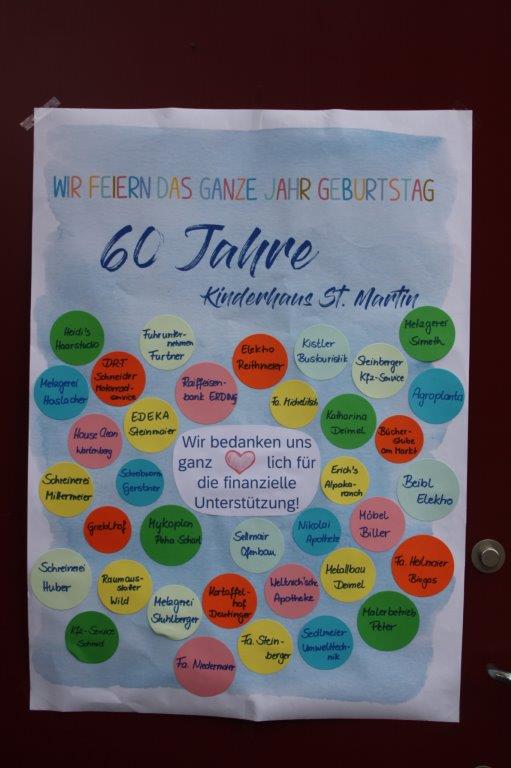 WIR FEIERN DAS GANZE JAHR GEBURTSTAG
60 Jahre
Kinderhaus St. Martin
Heidi's
Haarstudio
Fuhrunter-
nehmen
Furtner
Elektro
Reithmeier
Kistler
Bustouristik
Metzgerei
Simeth
Metzgerei
Haslacher
DRT
Schneider
Motorrad-
service
Raiffeisen-
bank ERDING
Steinberger
Kfz-Service
Agroplanta
Fa. Michelitsch
House Clean
Wartenberg
EDEKA
Steinmaier
Katharina
Deimel
Bücher-
stube
am Markt
Wir bedanken uns
ganz lich für
die finanzielle
Unterstützung!
Schreinerei
Mittermeier
Schreibwaren
Gerstner
Erich's
Alpaka-
ranch
Beibl
Elektro
Grieblhof
Mykoplan
Petra Scharl
Sellmair
Ofenbau
Nikolai
Apotheke
Möbel
Biller
Schreinerei
Huber
Raumaus-
statter
Wild
Metzgerei
Stuhlberger
Kartoffel-
hof
Deutinger
Weltrich'sche
Apotheke
Metallbau
Deimel
Fa. Heilmaier
Biogas
Kfz-Service
Schmid
Fa. Niedermaier
Fa. Stein-
berger
Sedlmeier
Umwelttech-
nik
Malerbetrieb
Peter